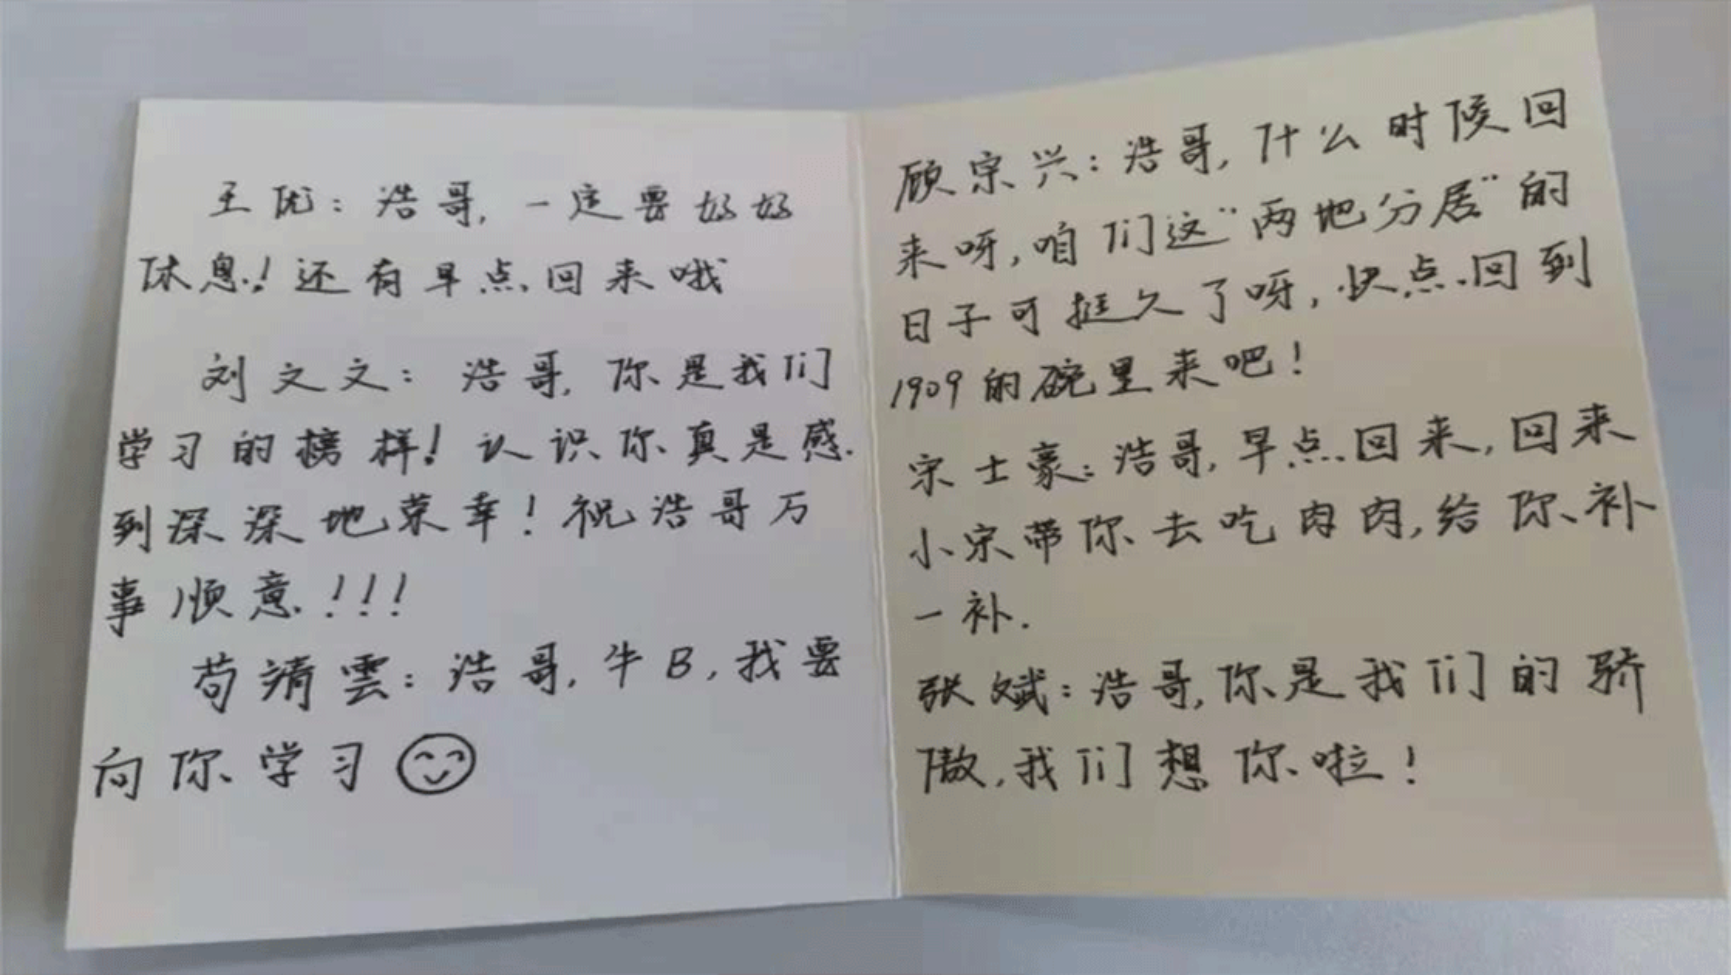 王优：浩哥，一定要好好
休息！还有早点回来哦
刘文文：浩哥，你是我们
学习的榜样！认识你真是感
到深深地荣幸！祝浩哥万
事顺意！！！
苟清雲：浩哥，牛B，我要
向你学习
顾宗兴：浩哥，什么时候回
来呀，咱们这“两地分居”的
日子可挺久了呀，快点回到
1909的碗里来吧！
宋士豪：浩哥，早点回来，回来
小宋带你去吃肉肉，给你补
一补.
张斌：浩哥，你是我们的骄
傲，我们想你啦！